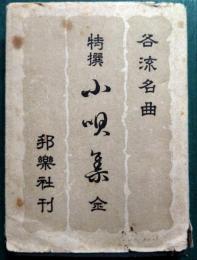 各流名曲
特撰
小唄集 全
邦樂社刊